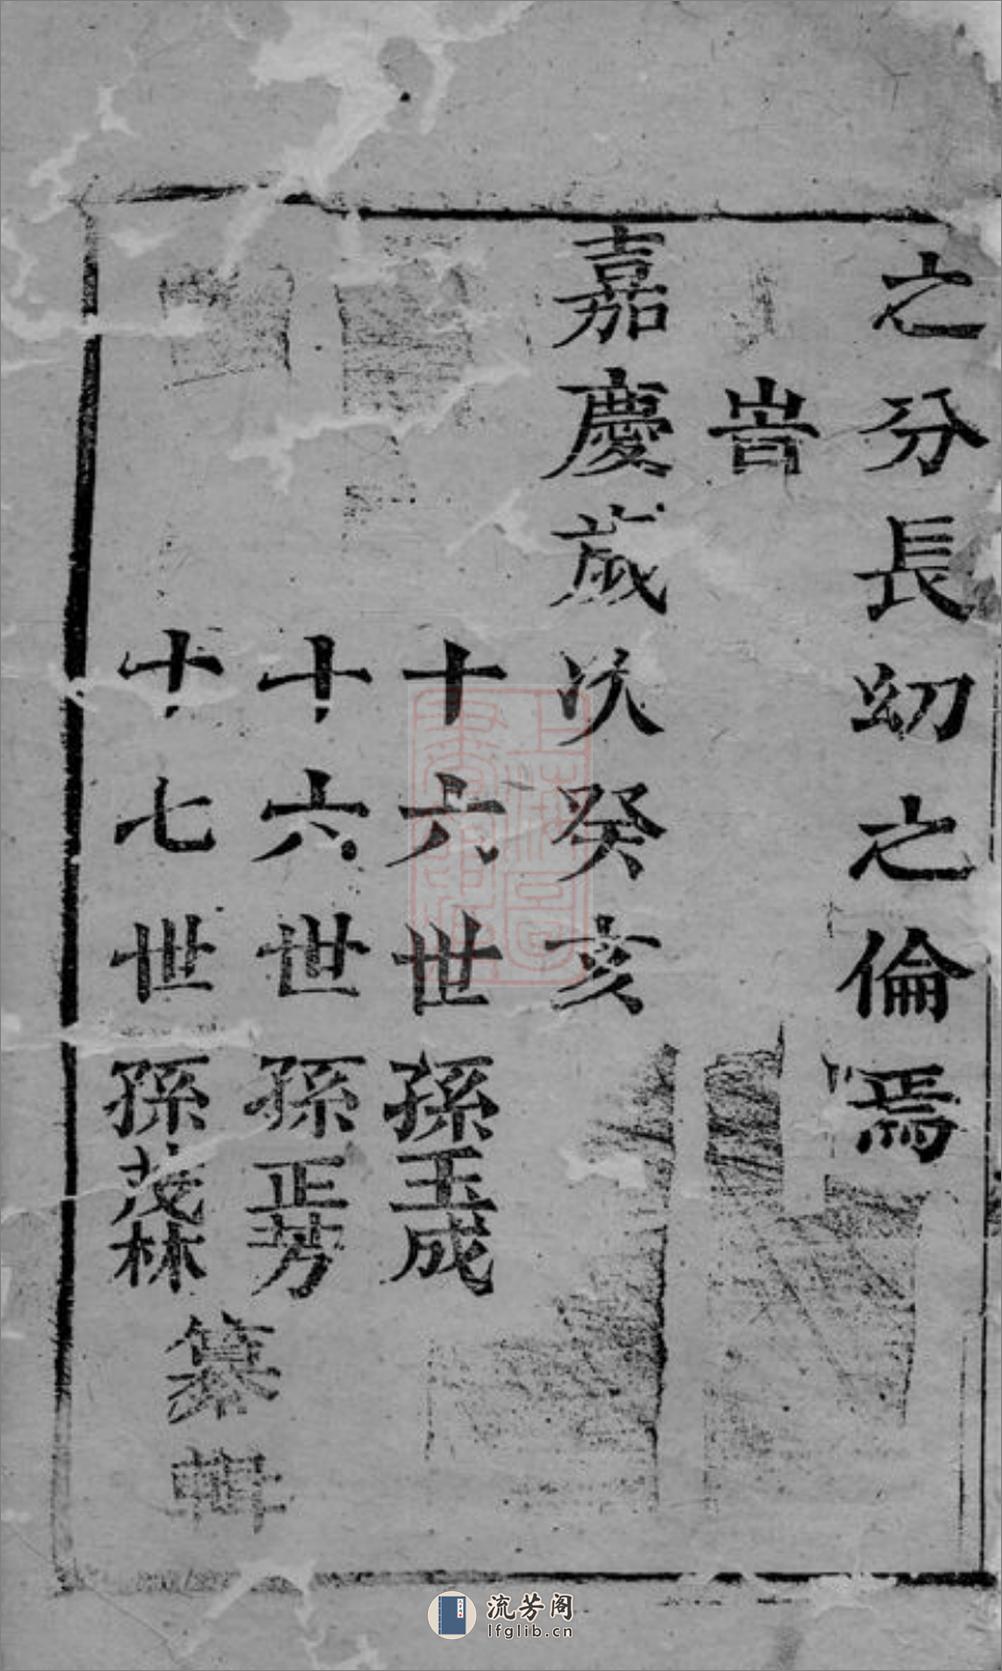 之分長幼之倫焉
旹
嘉慶歲次癸亥
十六世孫玉成
十六世孫正芳
十七世孫茂林
纂輯
流芳阁
lfglib.cn